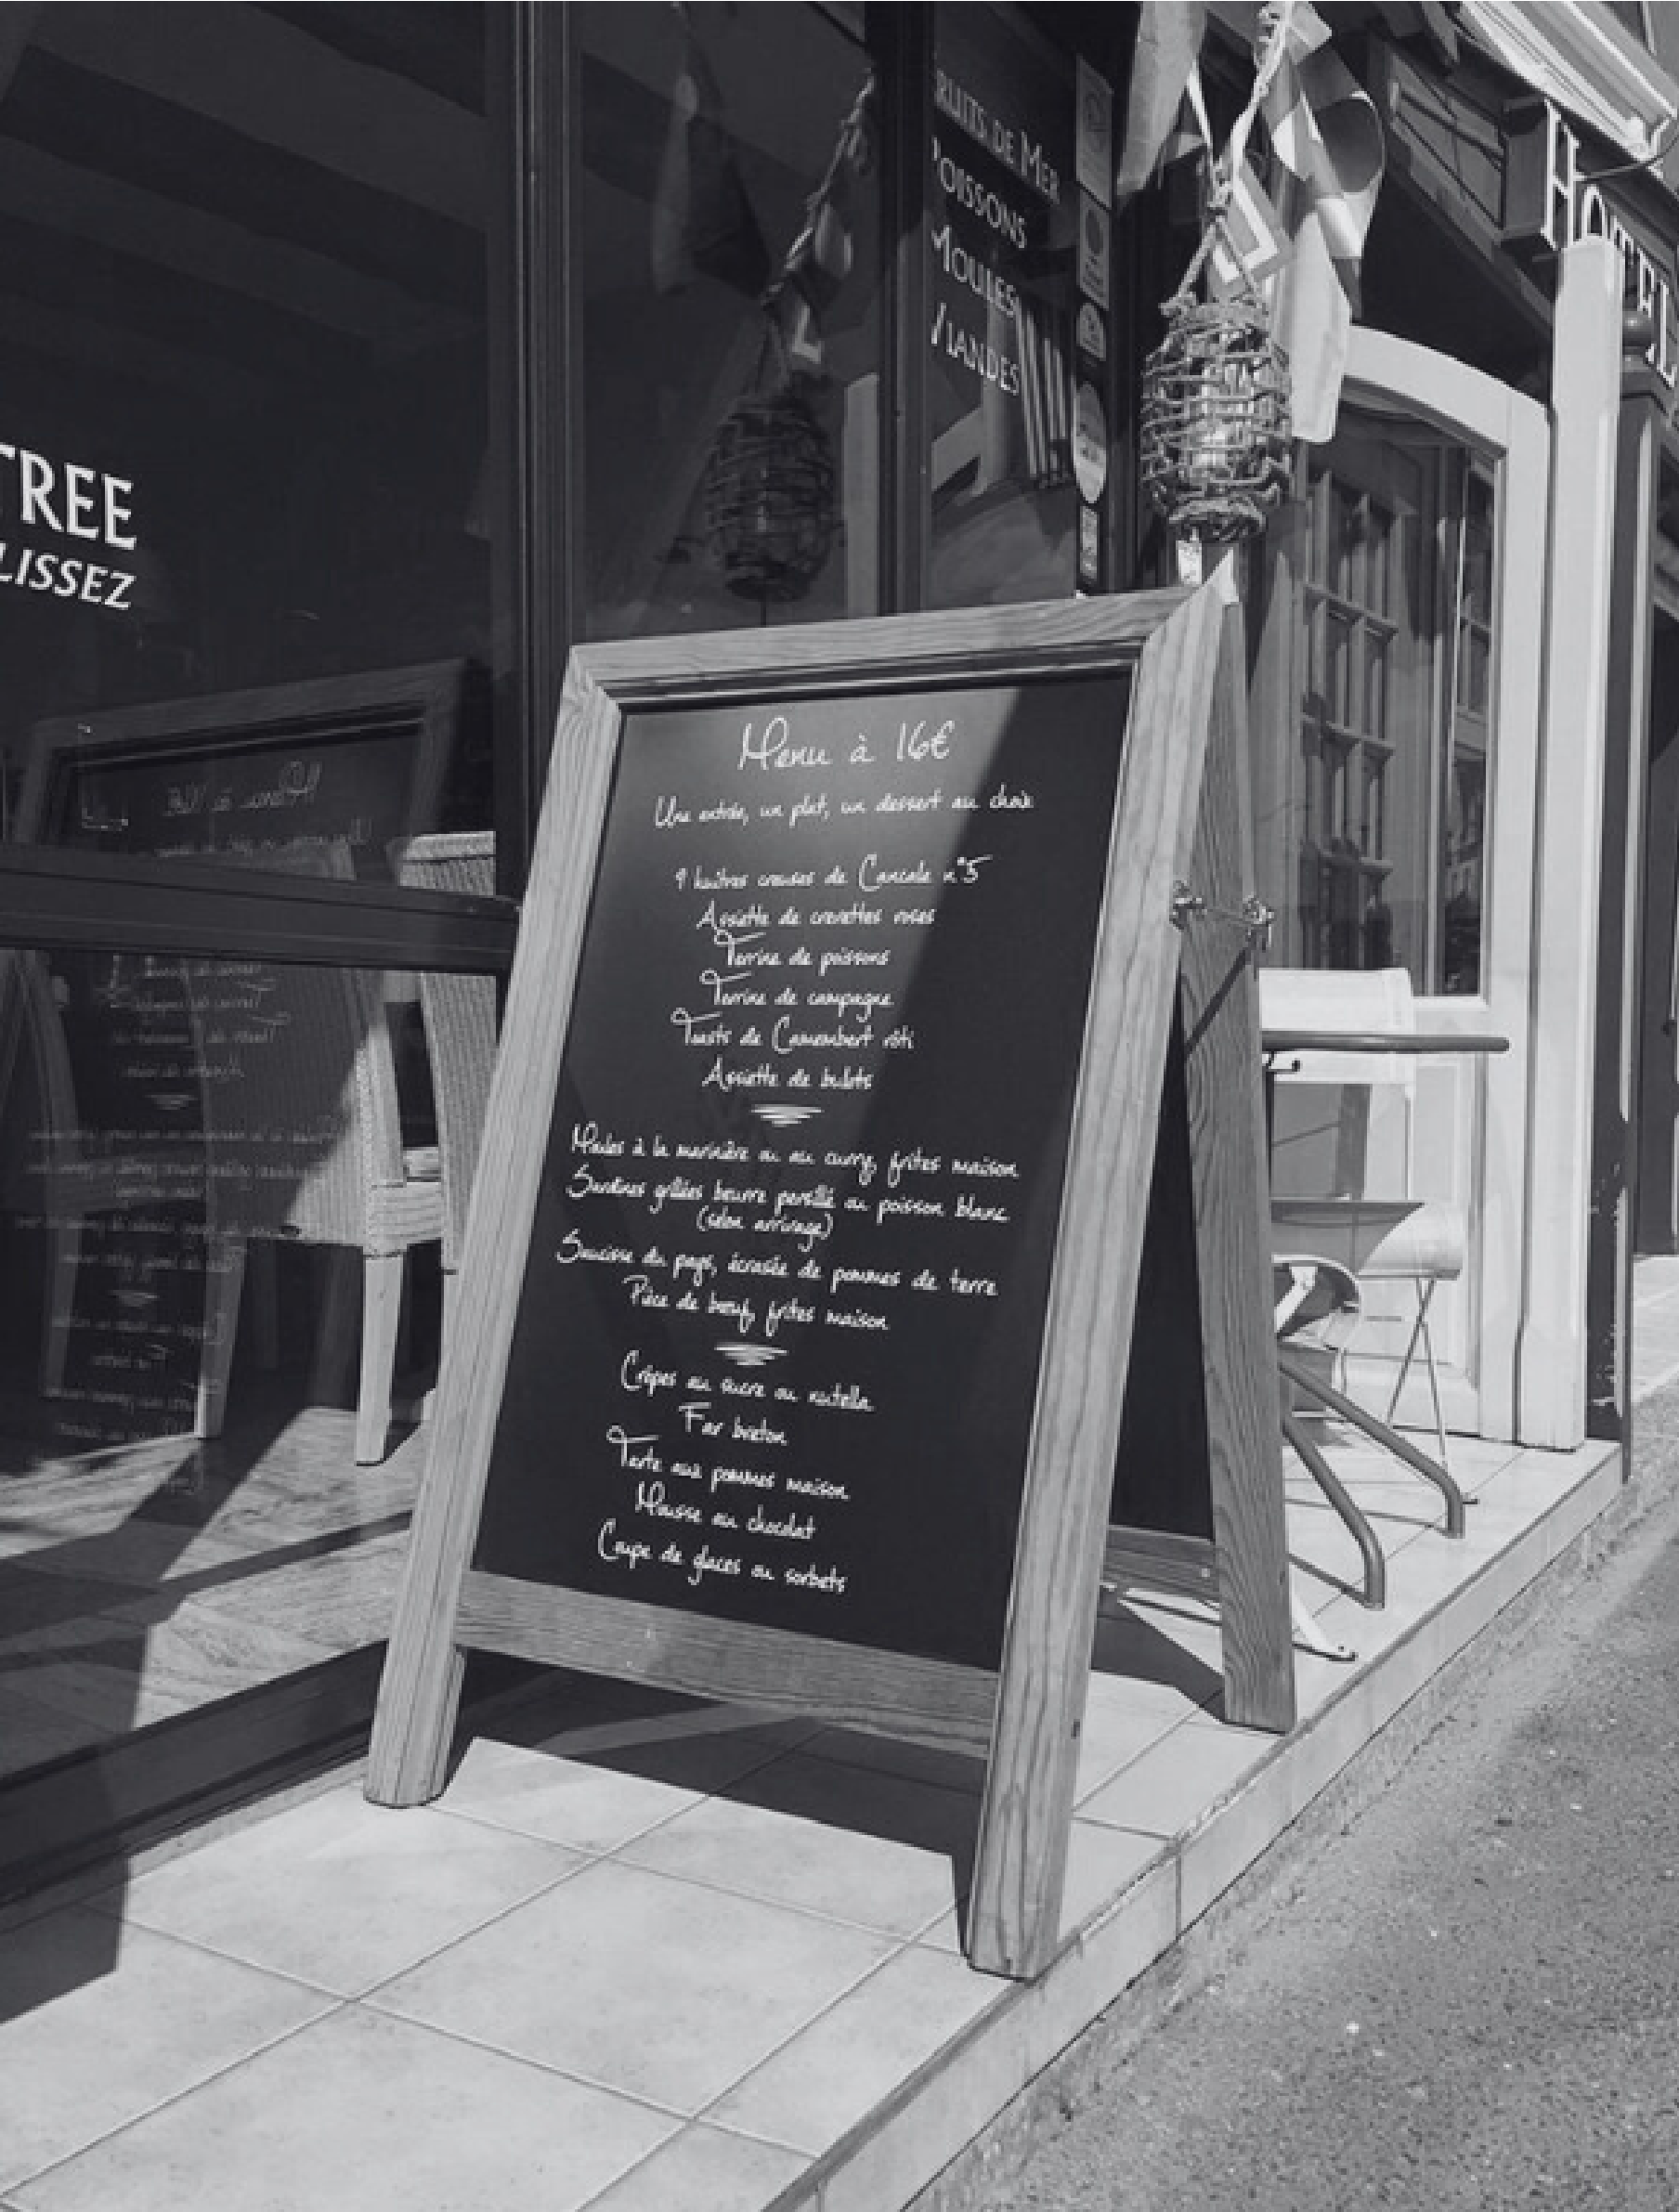 TREE
LISSEZ
RUITS DE MER
POISSONS
MOULES
VIANDES
HOTEL
Menu à 16€
Une entrée, un plat, un dessert au choix
9 huîtres creuses de Cancale n°5
Assiette de crevettes roses
Terrine de poissons
Terrine de campagne
Toasts de Camembert rôti
Assiette de bulots
Moules à la marinière ou au curry, frites maison
Sardines grillées beurre persillé ou poisson blanc
(selon arrivage)
Saucisse du pays, écrasée de pommes de terre
Pièce de boeuf, frites maison
Crêpes au sucre ou nutella
Far breton
Tarte aux pommes maison
Mousse au chocolat
Coupe de glaces ou sorbets